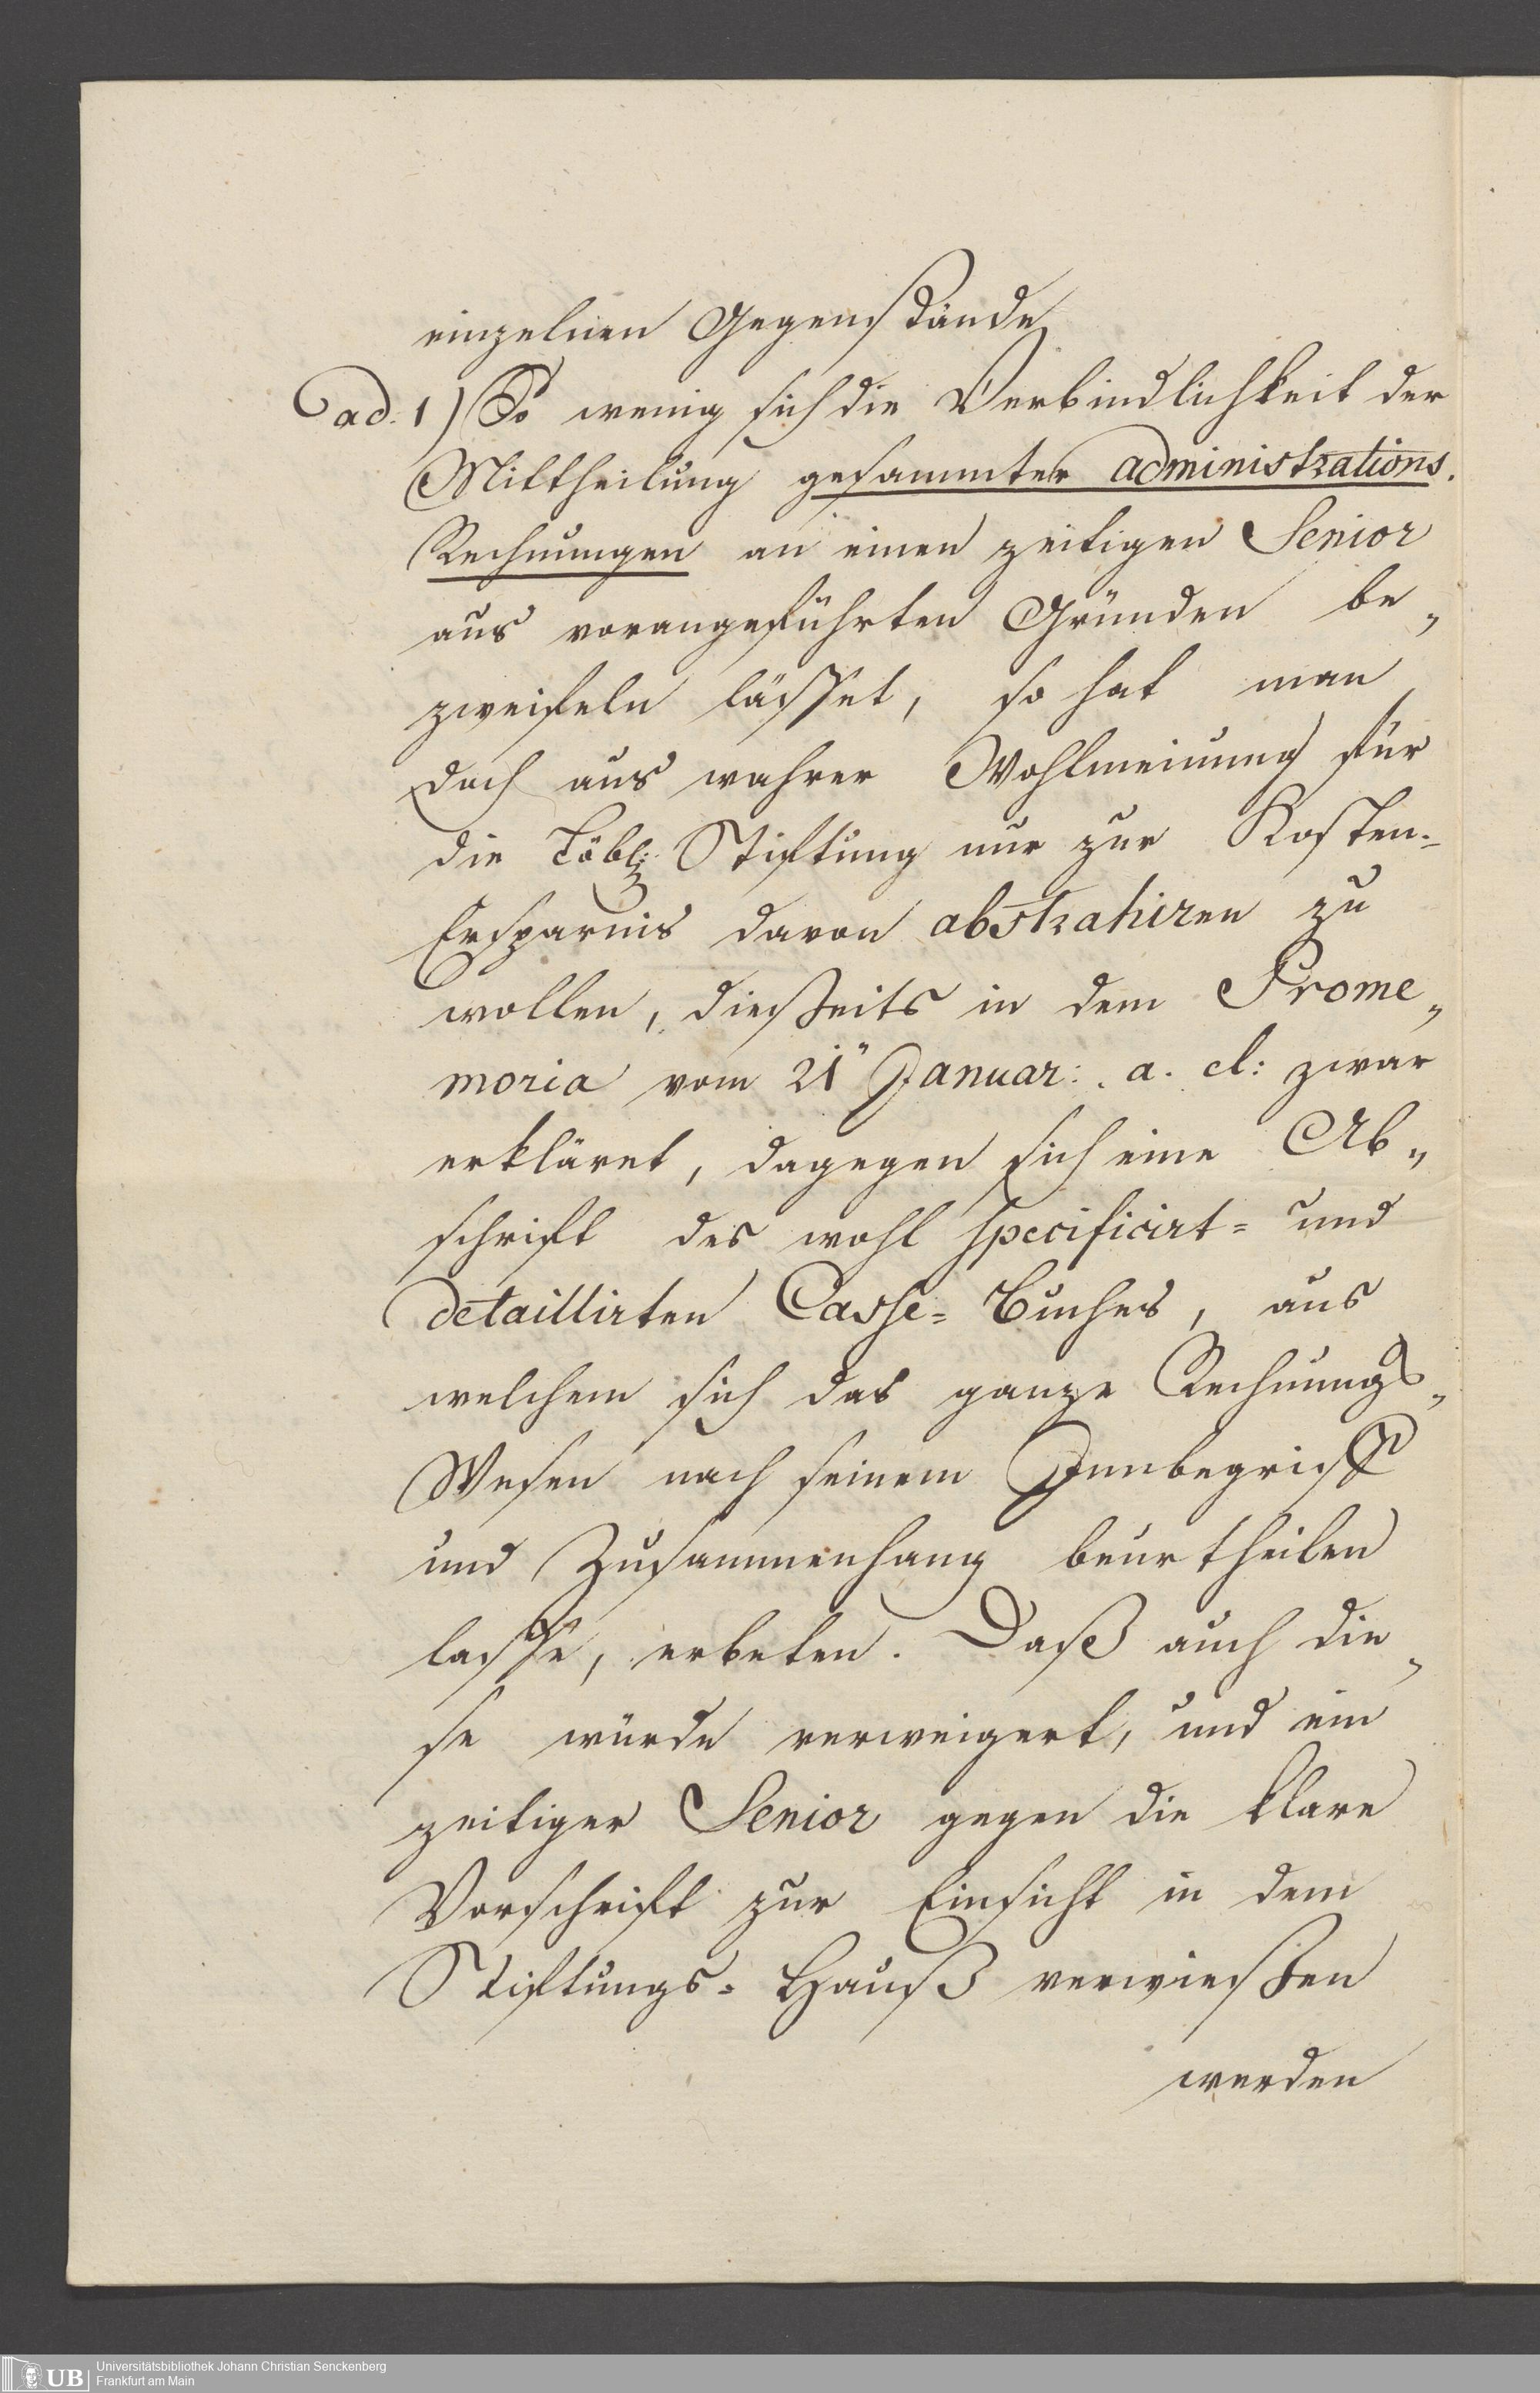 einzelnen Gegenstände
ad. 1) So wenig sich die Verbindlichkeit der
Mittheilung gesammter administrations.
Rechnungen an einen zeitigen Senior
aus vorangeführten Gründen be„
zweifeln lässet, so hat man
doch aus wahrer Wohlmeinung für
die Löbl: Stiftung nur zur Kosten-
Ersparnis davon abstrahiren zu
wollen, diesseits in dem Prome„
moria vom 21" Januar: a. c: zwar
erkläret, dagegen sich eine Ab„
schrift des wohl specificirt= und
detaillirten Casse= Buches, aus
welchem sich das ganze Rechnungs„
Wesen nach seinem Innbegriff
und Zusammenhang beurtheilen
lasse, erbeten. Daß auch die„
se würde verweigert, und ein
zeitiger Senior gegen die klare
Vorschrift zur Einsicht in dem
Stiftungs= Hauß verwiesen
werden
UB
Universitätsbibliothek Johann Christian Senckenberg
Frankfurt am Main